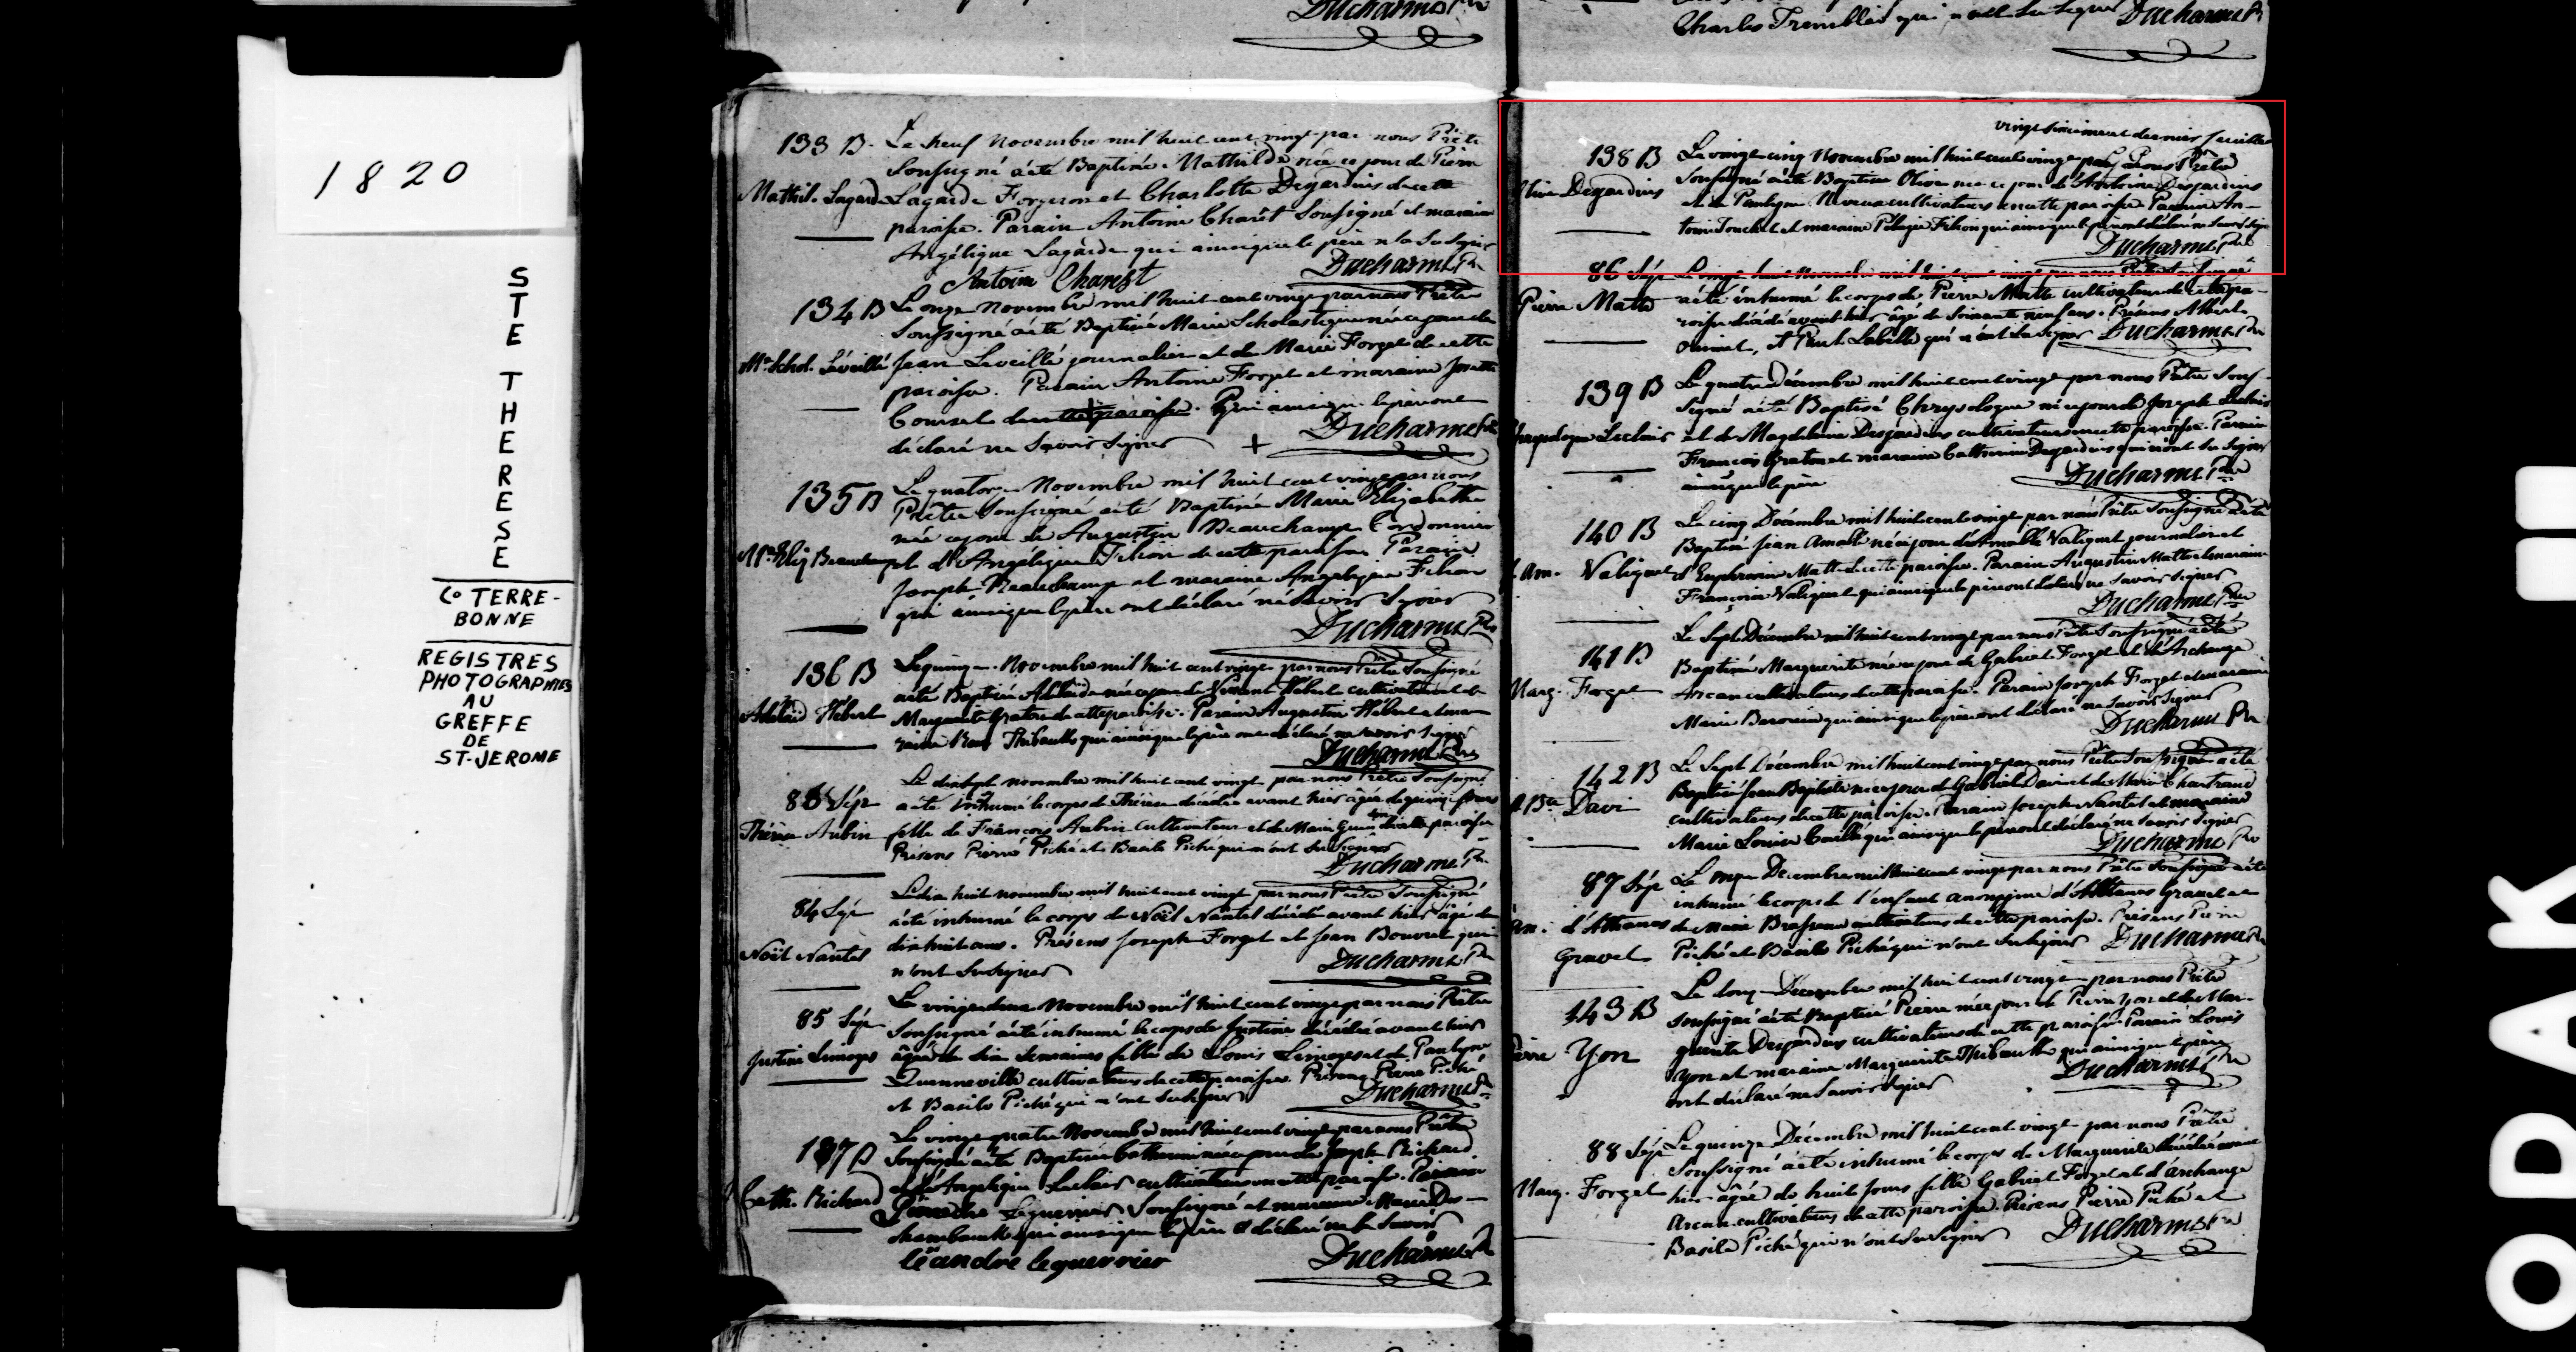 Ducharme Ptre
Charles Tremblé qui n'ont su signer Ducharme Ptre
1820
STE THERESE
Co TERRE-
BONNE
REGISTRES
PHOTOGRAPHIES
AU
GREFFE
DE
ST-JEROME
133 B. Le neuf Novembre mil huit cent vingt par nous Prêtre
Soussigné a été Baptisée Mathilde née ce jour de Pierre
Mathil. Lagarde Lagarde Forgeron et Charlotte Desjardins de cette
paroisse. Parain Antoine Charêt Soussigné et maraine
Angélique Lagarde qui ainsi que le père n'a su signer
Antoine Charest Ducharme Ptre
134 B Le onze Novembre mil huit cent vingt par nous Prêtre
Soussigné a été Baptisée Marie Scholastique née ce jour de
Me Schol. Léveillé Jean Leveillé journalier et de Marie Forget de cette
paroisse. Parain Antoine Forget et maraine Josette
de cette paroisse. Qui ainsi que le père ont
déclaré ne Savoir Signer + Ducharme Ptre
135 B Le quatorze Novembre mil huit cent vingt par nous
Prêtre Soussigné a été Baptisée Marie Elizabeth
née ce jour de Augustin Beauchamp Cordonnier
Me Eliz Beauchamp et d'Angélique Filion de cette paroisse Parain
Joseph Beauchamp et maraine Angélique Filion
qui ainsi que le père ont déclaré ne Savoir Signer
Ducharme Ptre
136 B Le quinze Novembre mil huit cent vingt par nous Prêtre Soussigné
a été Baptisée Adelaide née ce jour de Vincent Hébert cultivateur et de
Adelaid Hébert Marguerite Graton de cette paroisse. Parain Augustin Hébert et mar-
raine Rose Thibault qui ainsi que le père ont déclaré ne savoir signer
Ducharme Ptre
83 Sép Le dix sept novembre mil huit cent vingt par nous Prêtre Soussigné
a été inhumé le corps de Thérèse décédée avant hier âgée de quinze jours
Thérèse Aubin fille de François Aubin cultivateur et de Marie de cette paroisse
Présens Pierre Piché et Basile Piché qui n'ont su signer
Ducharme Ptre
84 Sép Le dix huit novembre mil huit cent vingt par nous Prêtre Soussigné
a été inhumé le corps de Noël Nantel décédé avant hier âgé de
dix huit ans. Présens Joseph Forget et Jean Bouvret qui
Noël Nantel n'ont su signer Ducharme Ptre
85 Sép Le vingt deux Novembre mil huit cent vingt par nous Prêtre
Soussigné a été inhumé le corps de Justine décédée avant hier
Justine Limoges âgée de six semaines fille de Louis Limoges et de Paulgne
Quenneville cultivateurs de cette paroisse. Présens Pierre Piché
et Basile Piché qui n'ont su signer Ducharme Ptre
137 B Le vingt quatre Novembre mil huit cent vingt par nous Prêtre
Soussigné a été Baptisée Catherine née ce jour de Joseph Richard
et d'Angélique Leclair cultivateurs en cette paroisse. Parain
Cath. Richard Léandre Leguerrier Soussigné et maraine Marie Des-
chambault qui ainsi que le père a déclaré ne le Savoir
léandre leguerrier Ducharme Ptre
vingt sixieme et dernier feuillet
138 B Le vingt cinq Novembre mil huit cent vingt par nous Prêtre
Soussigné a été Baptisée Olive née ce jour d'Antoine Desjardins
Olive Desjardins et de Paulgne cultivateurs en cette paroisse Parain An-
toine Touchet et maraine Pélagie Filion qui ainsi que le père ont déclaré ne Savoir Signer
Ducharme Ptre
86 Sép Le vingt huit Novembre mil huit cent vingt par nous Prêtre Soussigné
Pierre Matte a été inhumé le corps de Pierre Matte cultivateur de cette pa-
roisse décédé avant hier âgé de soixante neuf ans. Présens Albert
Ouimet, et Paul Labelle qui n'ont su signer Ducharme Ptre
139 B Le quatre Décembre mil huit cent vingt par nous Prêtre Sous-
signé a été Baptisé Chrysologue né ce jour de Joseph Leclair
Chrysologue Leclair et de Magdeleine Desjardins cultivateurs en cette paroisse. Parain
François Graton et maraine Catherine Desjardins qui n'ont su signer
ainsi que le père Ducharme Ptre
140 B Le cinq Décembre mil huit cent vingt par nous Prêtre Soussigné a été
Baptisé Jean Amable né ce jour d'Amable Valiquet journalier et
J. Am. Valiquet d'Euphrosine Matte de cette paroisse. Parain Augustin Matte et maraine
Françoise Valiquet qui ainsi que le père ont déclaré ne Savoir Signer
Ducharme Ptre
141 B Le Sept Décembre mil huit cent vingt par nous Prêtre Soussigné a été
Baptisée Marguerite née ce jour de Gabriel Forget et d'Archange
Marg. Forget Arcan cultivateurs de cette paroisse. Parain Joseph Forget et maraine
Marie qui ainsi que le père ont déclaré ne Savoir Signer
Ducharme Ptre
142 B Le Sept Décembre mil huit cent vingt par nous Prêtre Soussigné a été
Baptisé Jean Baptiste né ce jour de Gabriel Davi et de Marie Chartrand
J. Bte Davi cultivateurs de cette paroisse. Parain Joseph Nantel et maraine
Marie Louise qui ainsi que le père ont déclaré ne Savoir Signer
Ducharme Ptre
87 Sép Le onze Decembre mil huit cent vingt par nous Prêtre Soussigné a été
inhumé le corps de l'enfant anonyme d'Athanas Gravel et
An. d'Athanas de Marie Brasseau cultivateurs de cette paroisse. Présens Pierre
Gravel Piché et Basile Piché qui n'ont su signer Ducharme Ptre
143 B Le douze Decembre mil huit cent vingt par nous Prêtre
Soussigné a été Baptisé Pierre né ce jour de Pierre Yon et de Mar-
guerite Desjardins cultivateurs de cette paroisse Parain Louis
Pierre Yon Yon et maraine Marguerite Thibault qui ainsi que le père
ont déclaré ne Savoir Signer Ducharme Ptre
88 Sép Le quinze Décembre mil huit cent vingt par nous Prêtre
Soussigné a été inhumé le corps de Marguerite décédée avant
Marg. Forget hier âgée de huit jours fille Gabriel Forget et d'archange
Arcan cultivateurs de cette paroisse. Présens Pierre Piché et
Basile Piché qui n'ont su signer Ducharme Ptre